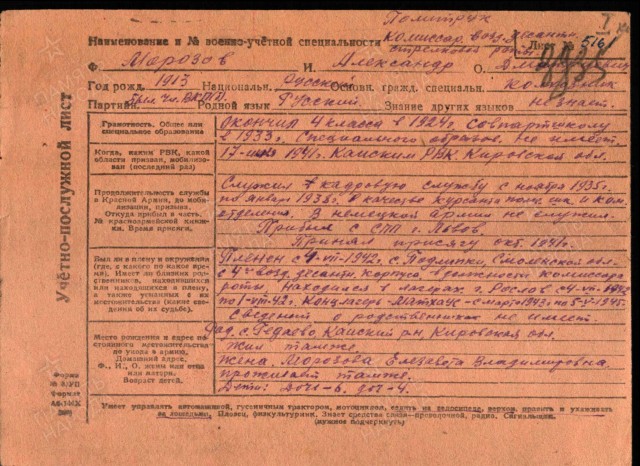 Политрук
Наименование и № военно-учётной специальности комиссар возд. десантн.
стрелковой роты
Лист № 5161
Ф. Морозов И. Александр О.
Год рожд. 1913 Национальн. Русский Основн. гражд. специальн.
Партийн. ВКП(б) Родной язык Русский Знание других языков не знает.
Учётно-послужной лист
Грамотность. Общее или специальное образования
Окончил 4 класса в 1924г. совпартшколу
в 1933г. Специального образов. не имеет
Когда, каким РВК, какой области призван, мобилизован (последний раз)
17- 1941г. Кайским РВК, Кировской обл.
Продолжительность службы в Красной Армии, до мобилизации, призыва. Откуда прибыл в часть. № красноармейской книжки. Время присяги.
Служил кадровую службу с ноября 1935г.
по январь 1938г. в качестве курсанта и ком.
отделения. В немецкой армии не служил.
Прибыл с СПП г. Львов.
Принял присягу окт. 1941г.
Был ли в плену и окружении (где, с какого по какое время). Имеет ли близких родственников, находившихся или находящихся в плену, а также угнанных с их местожительства (какие сведения об их судьбе).
Пленен с 4-VII-1942г. с. Подлипки, Смоленской обл.
с 4го возд. десантн. корпуса в должности комиссара
роты. Находился в лагерях г. Рославль с 4-VII-1942
по 1-VIII-42г. Концлагерь с марта 1943г. по 5-V-1945г.
Сведений о родственниках не имеет.
Место рождения и адрес постоянного местожительства до ухода в армию. Домашний адрес. Ф., И., О. жены или отца или матери. Возраст детей.
Род. с. Федаево Кайский р-н Кировская обл.
Жил там же.
Жена Морозова Елизавета Владимировна
проживает там же.
Дети: дочь-6, доч-4.
Форма № 8/УП
Формат
Имеет управлять автомашиной, гусеничным трактором, мотоциклом, ездить на велосипеде, верхом, править и ухаживать за лошадьми. Пловец, физкультурник. Знает средства связи—проводочной, радио. Сигнальщик.
(нужное подчеркнуть)